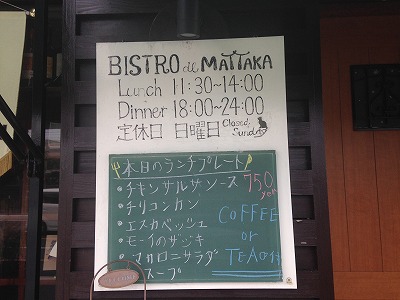 BISTRO de MATTAKA
Lunch 11:30~14:00
Dinner 18:00~24:00
定休日 日曜日 Closed Sunday
本日のランチプレート
・チキンサルサソース
・チリコンカン
・エスカベッシュ
・モーイのザジキ
マカロニサラダ
スープ
750 yen
COFFEE
or
TEA付